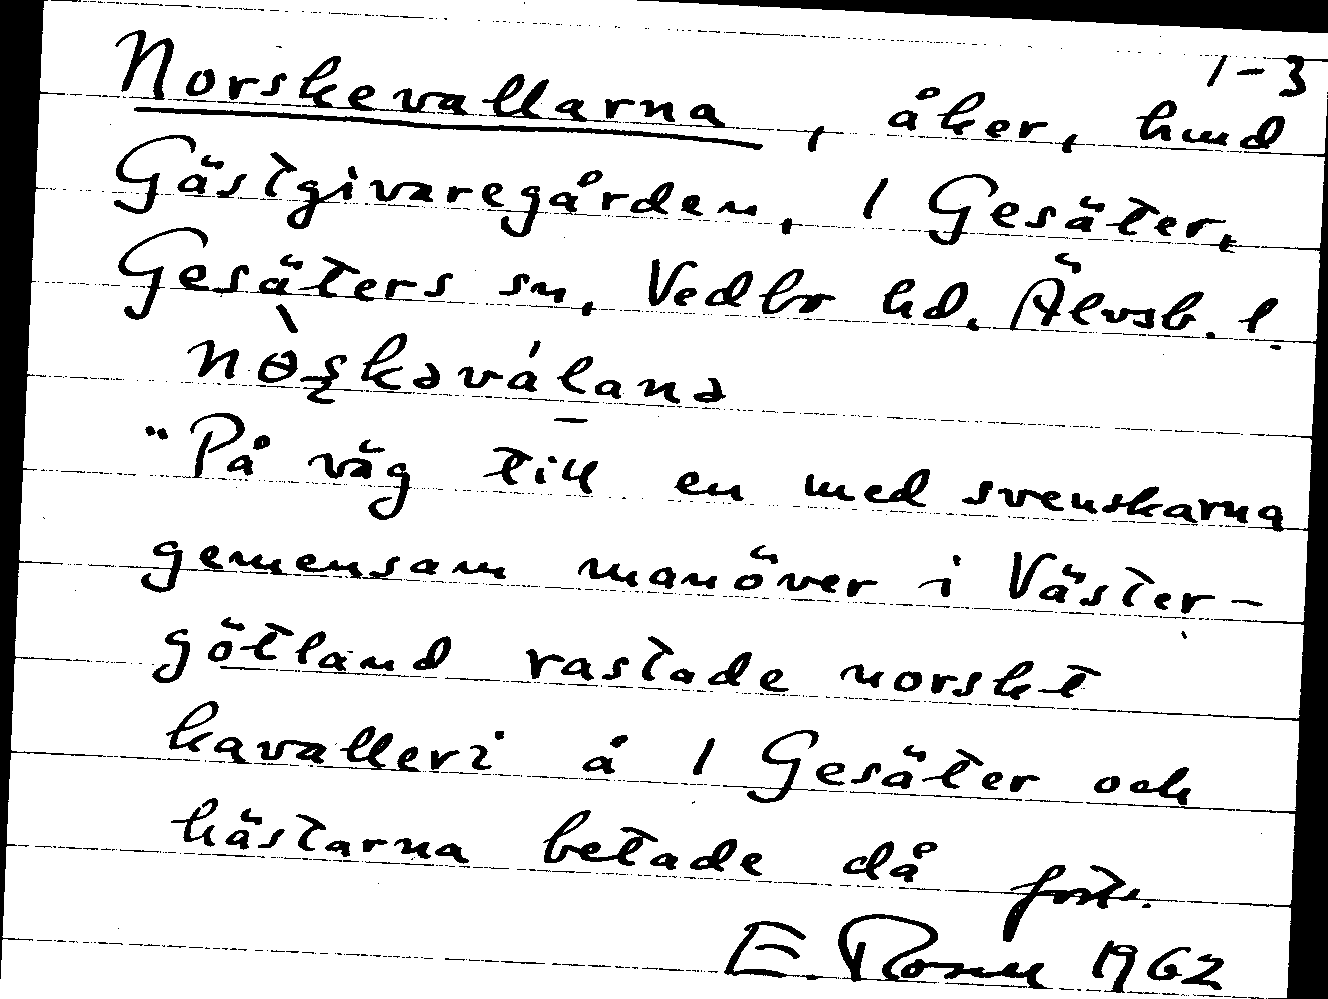 1-3
Norskevallarna, åker, hmd
Gästgivaregården, 1 Gesäter,
Gesäters sn, Vedbo hd, Älvsb. l.
"På väg till en med svenskarna
gemensam manöver i Väster-
götland rastade norskt
kavalleri å 1 Gesäter och
hästarna betade då forts.
E. Rosell 1962